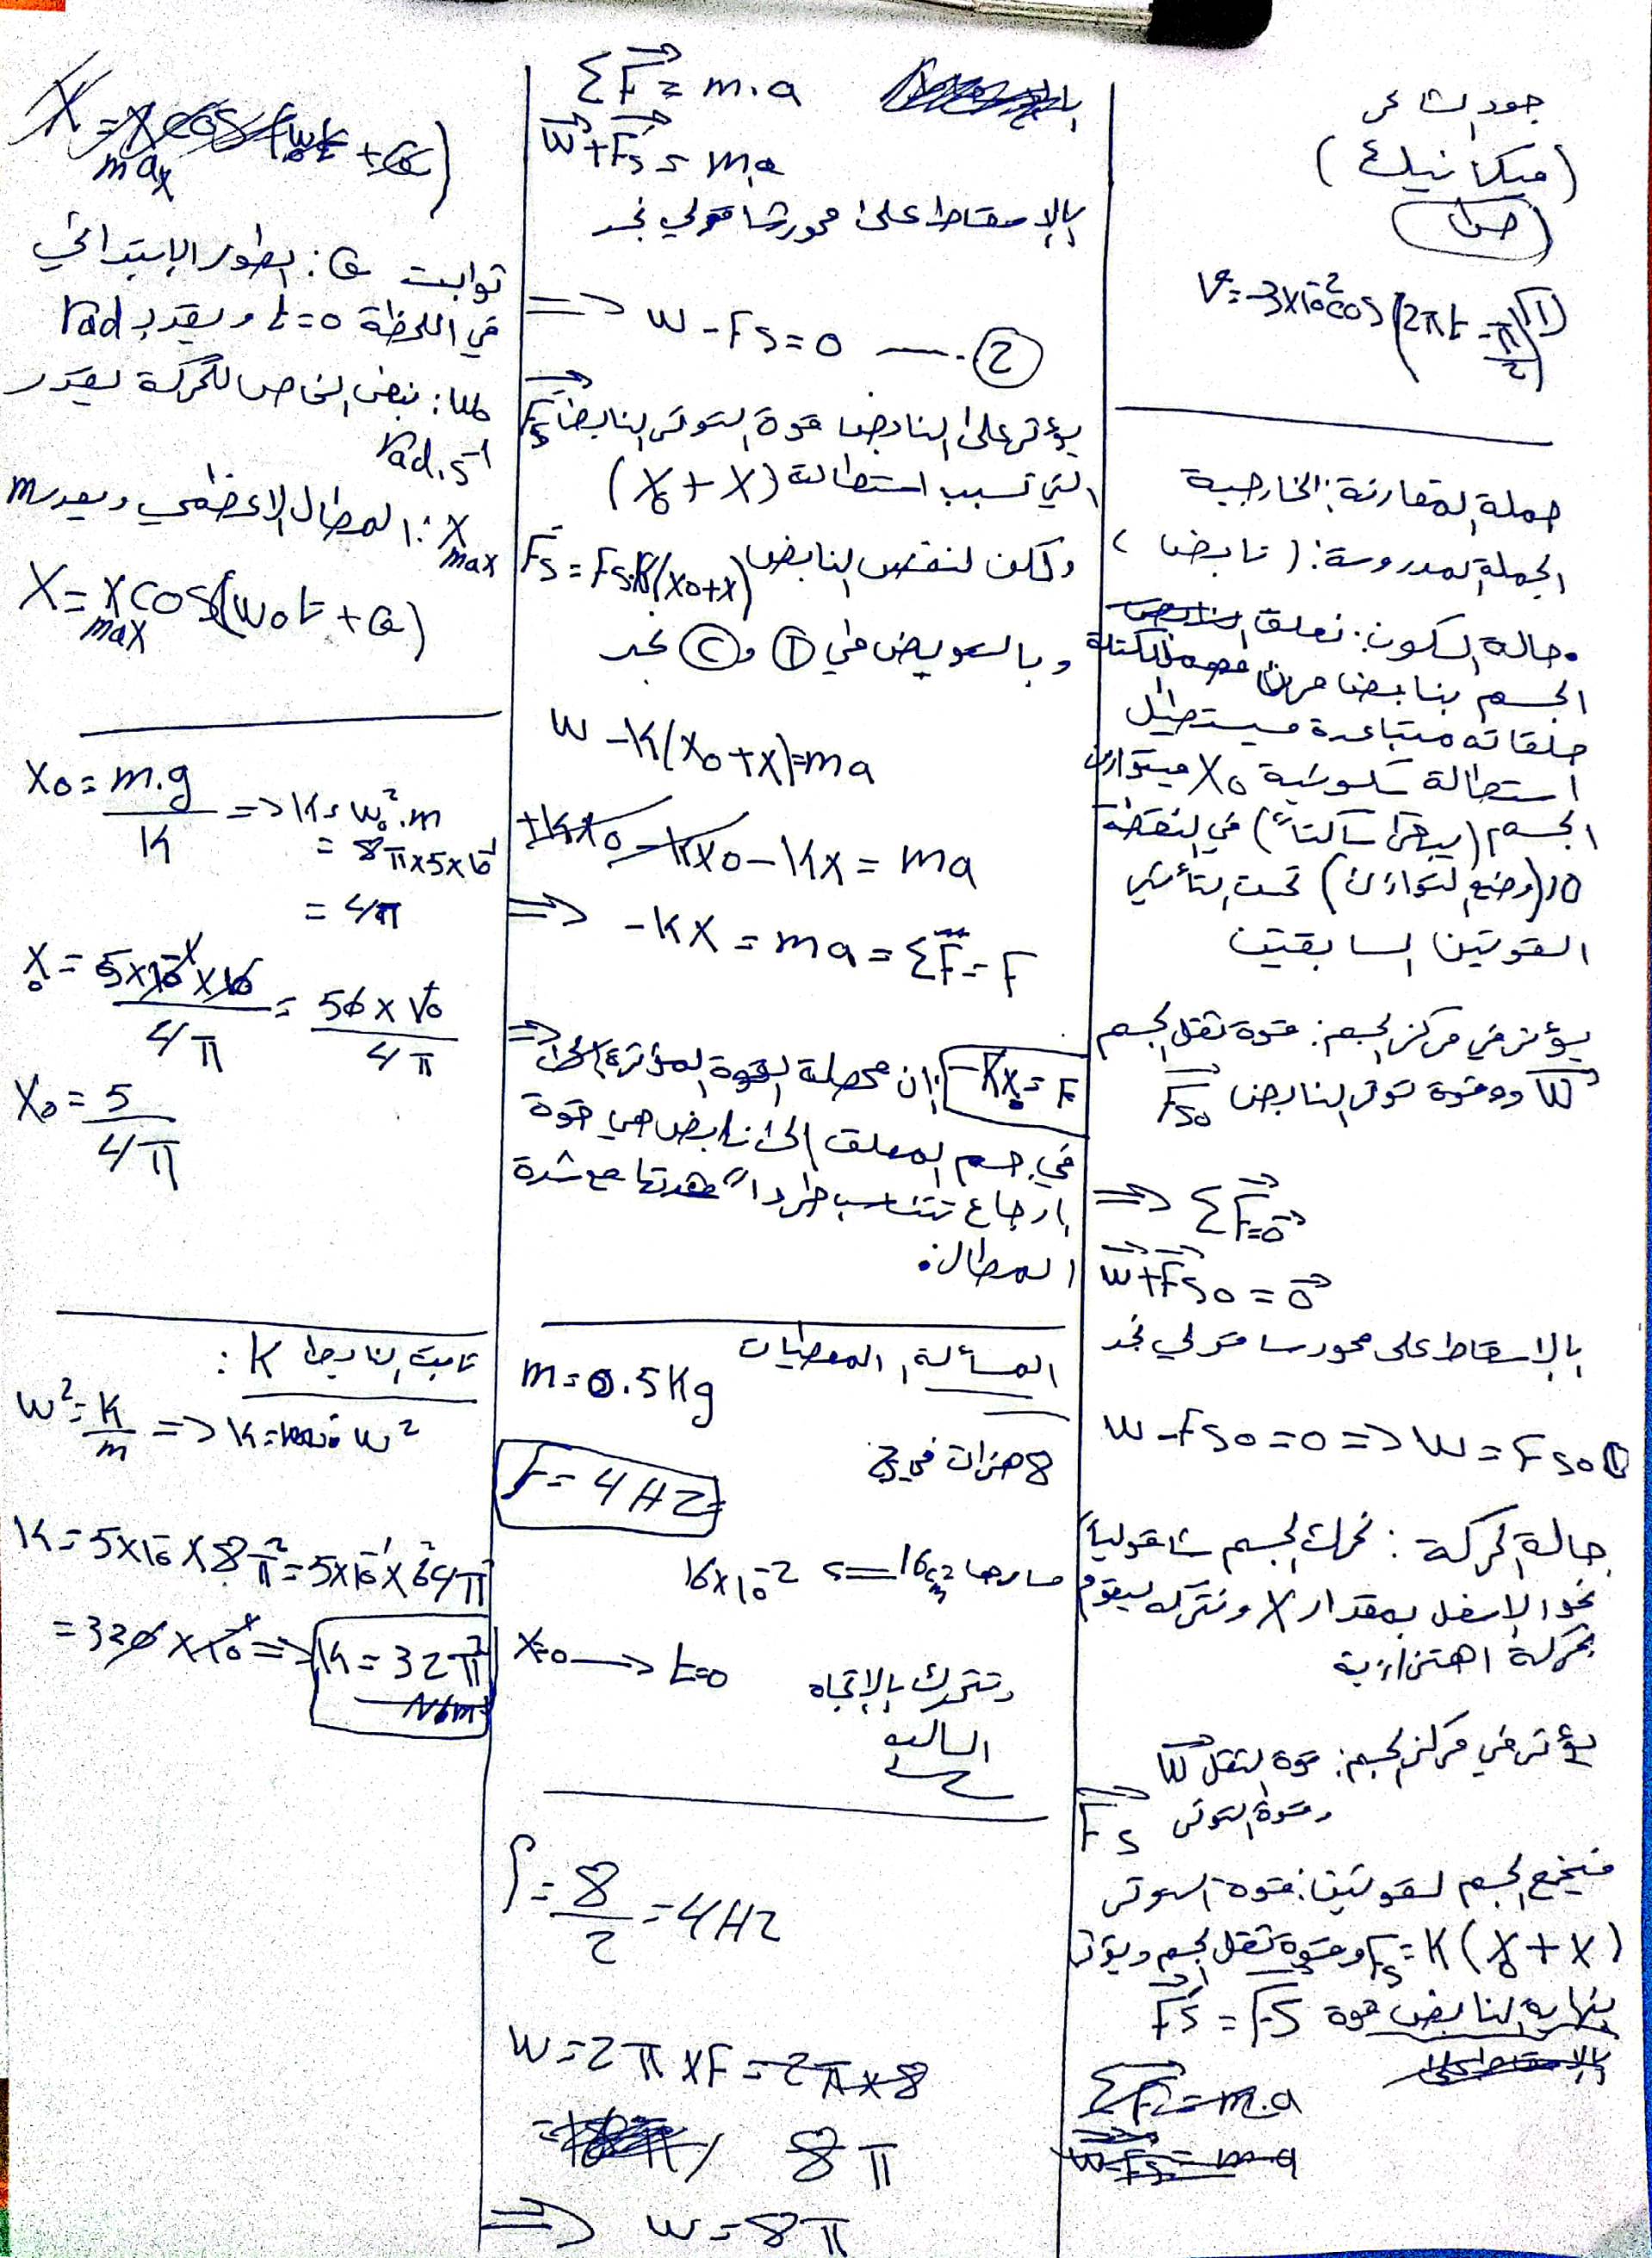 جود الشاعر
(ميكانيك)
V = -3×10⁻² cos(2πt - π/2) (1
جملة المقارنة: الخارجية
الجملة المدروسة: ( نابض )
• حالة السكون: نعلق
الجسم بنابض مرن مهمل الكتلة
حلقاته متباعدة فيستطيل
استطالة سكونية X₀ فيتوازن
الجسم (يبقى ساكناً) في النقطة
O (وضع التوازن) تحت تأثير
القوتين السابقتين
يؤثر في مركز الجسم: قوة ثقل الجسم
W وقوة توتر النابض Fs₀
=> ΣF = 0
W + Fs₀ = 0
بالإسقاط على محور شاقولي نجد
W - Fs₀ = 0 => W = Fs₀ ①
حالة الحركة: نحرك الجسم شاقولياً
نحو الاسفل بمقدار X ونتركه ليقوم
بحركة اهتزازية
يؤثر في مركز الجسم: قوة الثقل W
وقوة التوتر Fs
فيخضع الجسم لقوتين: قوة التوتر
Fs = K(X₀ + X) وقوة ثقل الجسم ويؤثر
بنهاية النابض قوة Fs' = Fs
ΣF = m.a
W - Fs = m.a
ΣF = m.a
W + Fs = m.a
بالإسقاط على محور شاقولي نجد
=> W - Fs = 0 — ②
يؤثر على النابض قوة التوتر النابض Fs'
التي تسبب استطالة (X₀ + X)
ولكن لنقص النابض Fs' = Fs.K(X₀+X)
وبالتعويض في ① و ② نجد
W - K(X₀+X) = ma
+KX₀ - KX₀ - KX = ma
=> -KX = ma = ΣF = F
=> -KX₀ = F إن محصلة القوة المؤثرة
في جسم المعلق الى نابض هي قوة
إرجاع تتناسب طرداً شدتها مع شدة
المطال.
المسألة، المعطيات
m = 0.5 Kg
8 هزات في 2
F = 4 HZ
16×10⁻²
X=0 → t=0 وتتحرك بالإتجاه
السالب
f = 8/2 = 4 HZ
W = 2π×F = 2π×8
8π
=> W = 8π
X = Xmax cos(w₀t + φ)
ثوابت φ: الطور الإبتدائي
في اللحظة t=0 ويقدر بـ rad
w₀: نبض الخاص للحركة يقدر
rad.s⁻¹
Xmax: المطال الاعظمي ويقدر m
X = Xmax cos(w₀t + φ)
X₀ = m.g/K => K = w₀².m
= 8π×5×10⁻¹
= 4π
X₀ = 5×10⁻¹×10/4π = 50×10⁻¹/4π
X₀ = 5/4π
ثابت النابض K:
W² = K/m => K = m.W²
K = 5×10⁻¹×8π² = 5×10⁻¹×64π²
= 320×10⁻¹ => K = 32π²
N/m